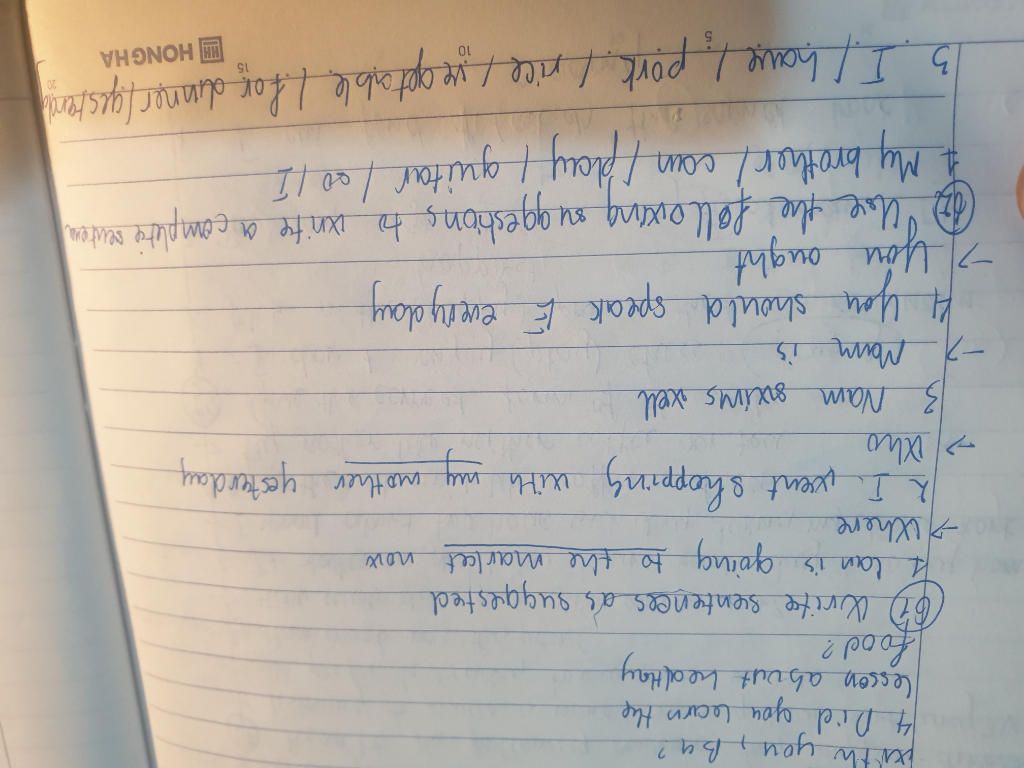 with you, Ba?
4 Did you learn the
lesson about healthy
food?
B1 Write sentences as suggested
1 Lan is going to the market now
→ Where
2 I went shopping with my mother yesterday
→ Who
3 Nam swims well
→ Nam is
4 You should speak E everyday
→ You ought
B2 Use the following suggestions to write a complete senten
1 My brother / can / play / guitar / so / I
3 I / have / pork / rice / vegetable / for dinner / yesterday
5 10 15 20
HH HONG HA